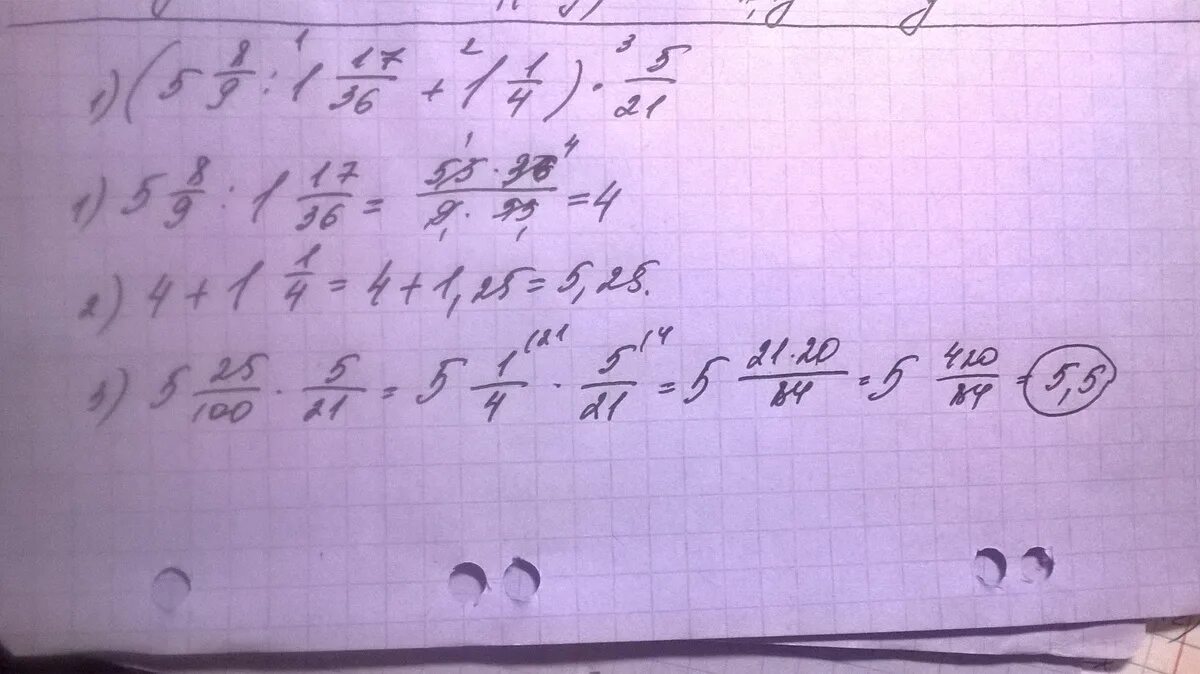 1) (5 8/9 : 1 17/36 + 1 1/4) · 5/21
1) 5 8/9 : 1 17/36 = 55·36/9·53 = 4
2) 4 + 1 1/4 = 4 + 1,25 = 5,25.
3) 5 25/100 · 5/21 = 5 1/4 · 5/21 = 5 21·20/84 = 5 420/84 = 5,5